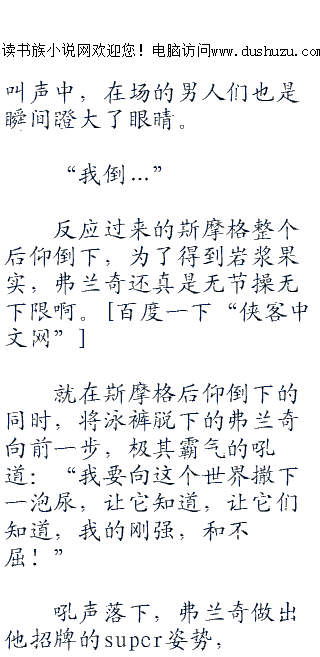 读书族小说网欢迎您！电脑访问www.dushuzu.com
叫声中，在场的男人们也是
瞬间瞪大了眼睛。
“我倒…”
反应过来的斯摩格整个
后仰倒下，为了得到岩浆果
实，弗兰奇还真是无节操无
下限啊。[百度一下“侠客中
文网”]
就在斯摩格后仰倒下的
同时，将泳裤脱下的弗兰奇
向前一步，极其霸气的吼
道：“我要向这个世界撒下
一泡尿，让它知道，让它们
知道，我的刚强，和不
屈！”
吼声落下，弗兰奇做出
他招牌的super姿势，